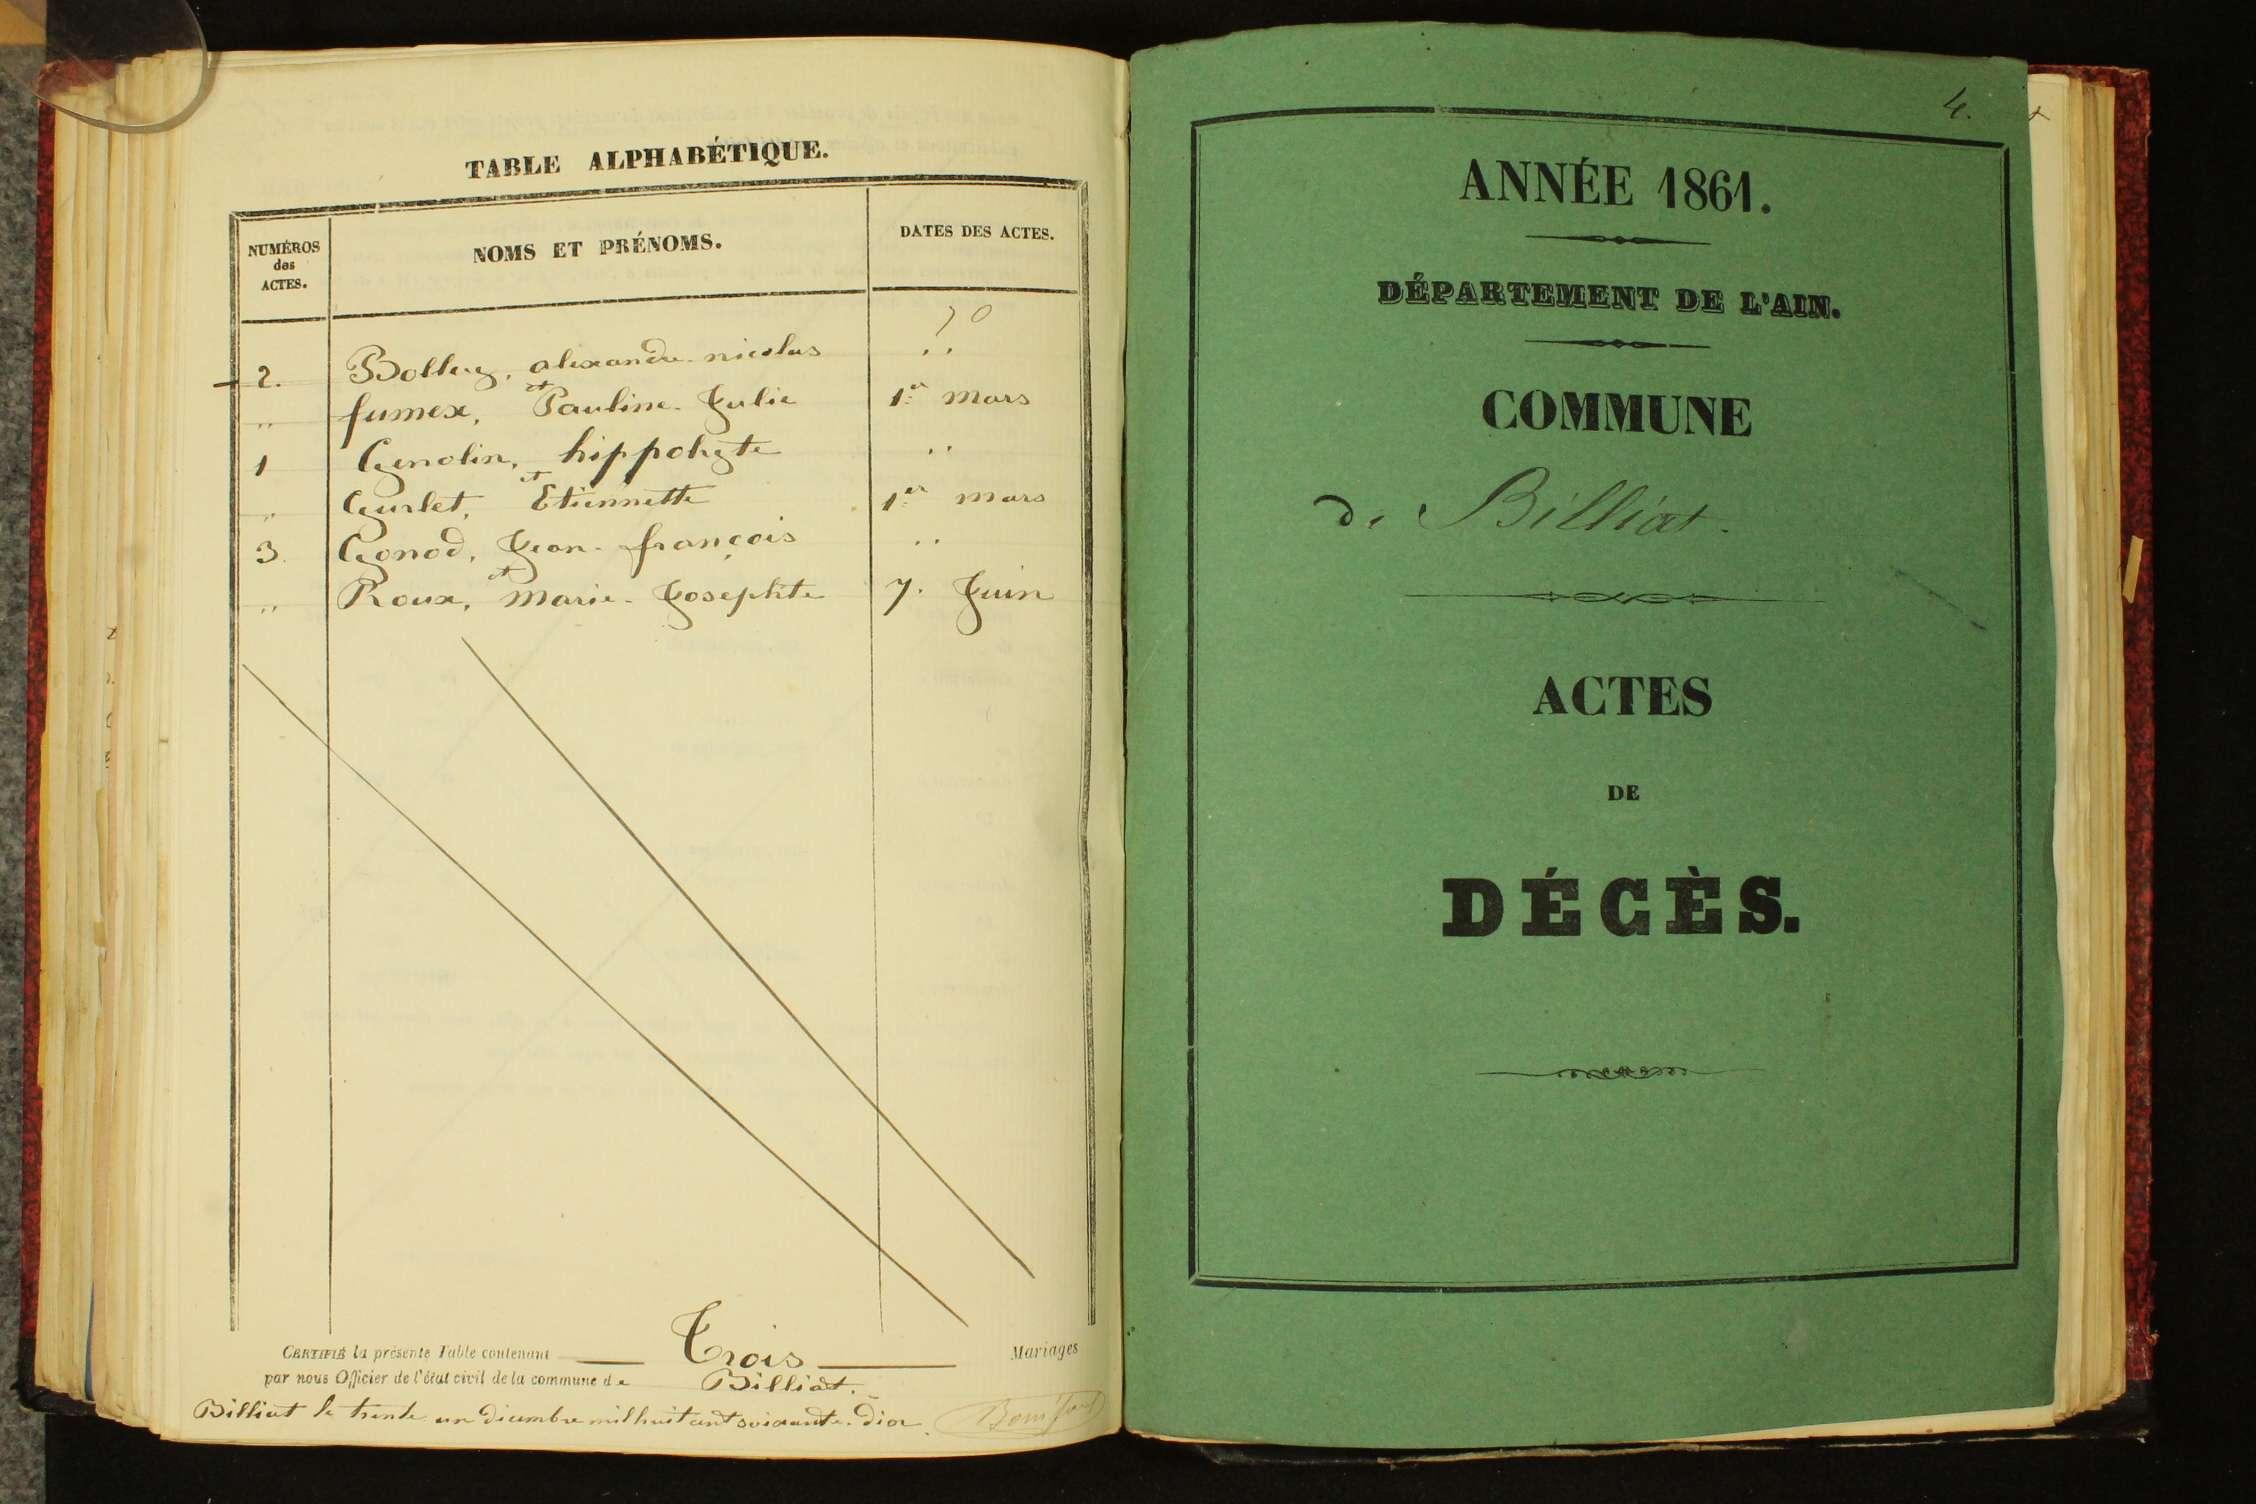 TABLE ALPHABÉTIQUE.
NUMÉROS
des
ACTES.
NOMS ET PRÉNOMS.
DATES DES ACTES.
70
2. Bolley, alexandre-nicolas ..
et
.. fumex, Pauline-Julie 1er mars
1 Genolin, hippolyte ..
et
.. Gurlet, Etiennette 1er mars
3. Gonod, Jean-françois ..
et
.. Roux, marie-Josephte 7. Juin
CERTIFIÉ la présente Table contenant Trois Mariages
par nous Officier de l'état civil de la commune de Billiat.
Billiat le trente un décembre mil huit cent soixante-dix.
4.
ANNÉE 1861.
DÉPARTEMENT DE L'AIN.
COMMUNE
de Billiat.
ACTES
DE
DÉCÈS.